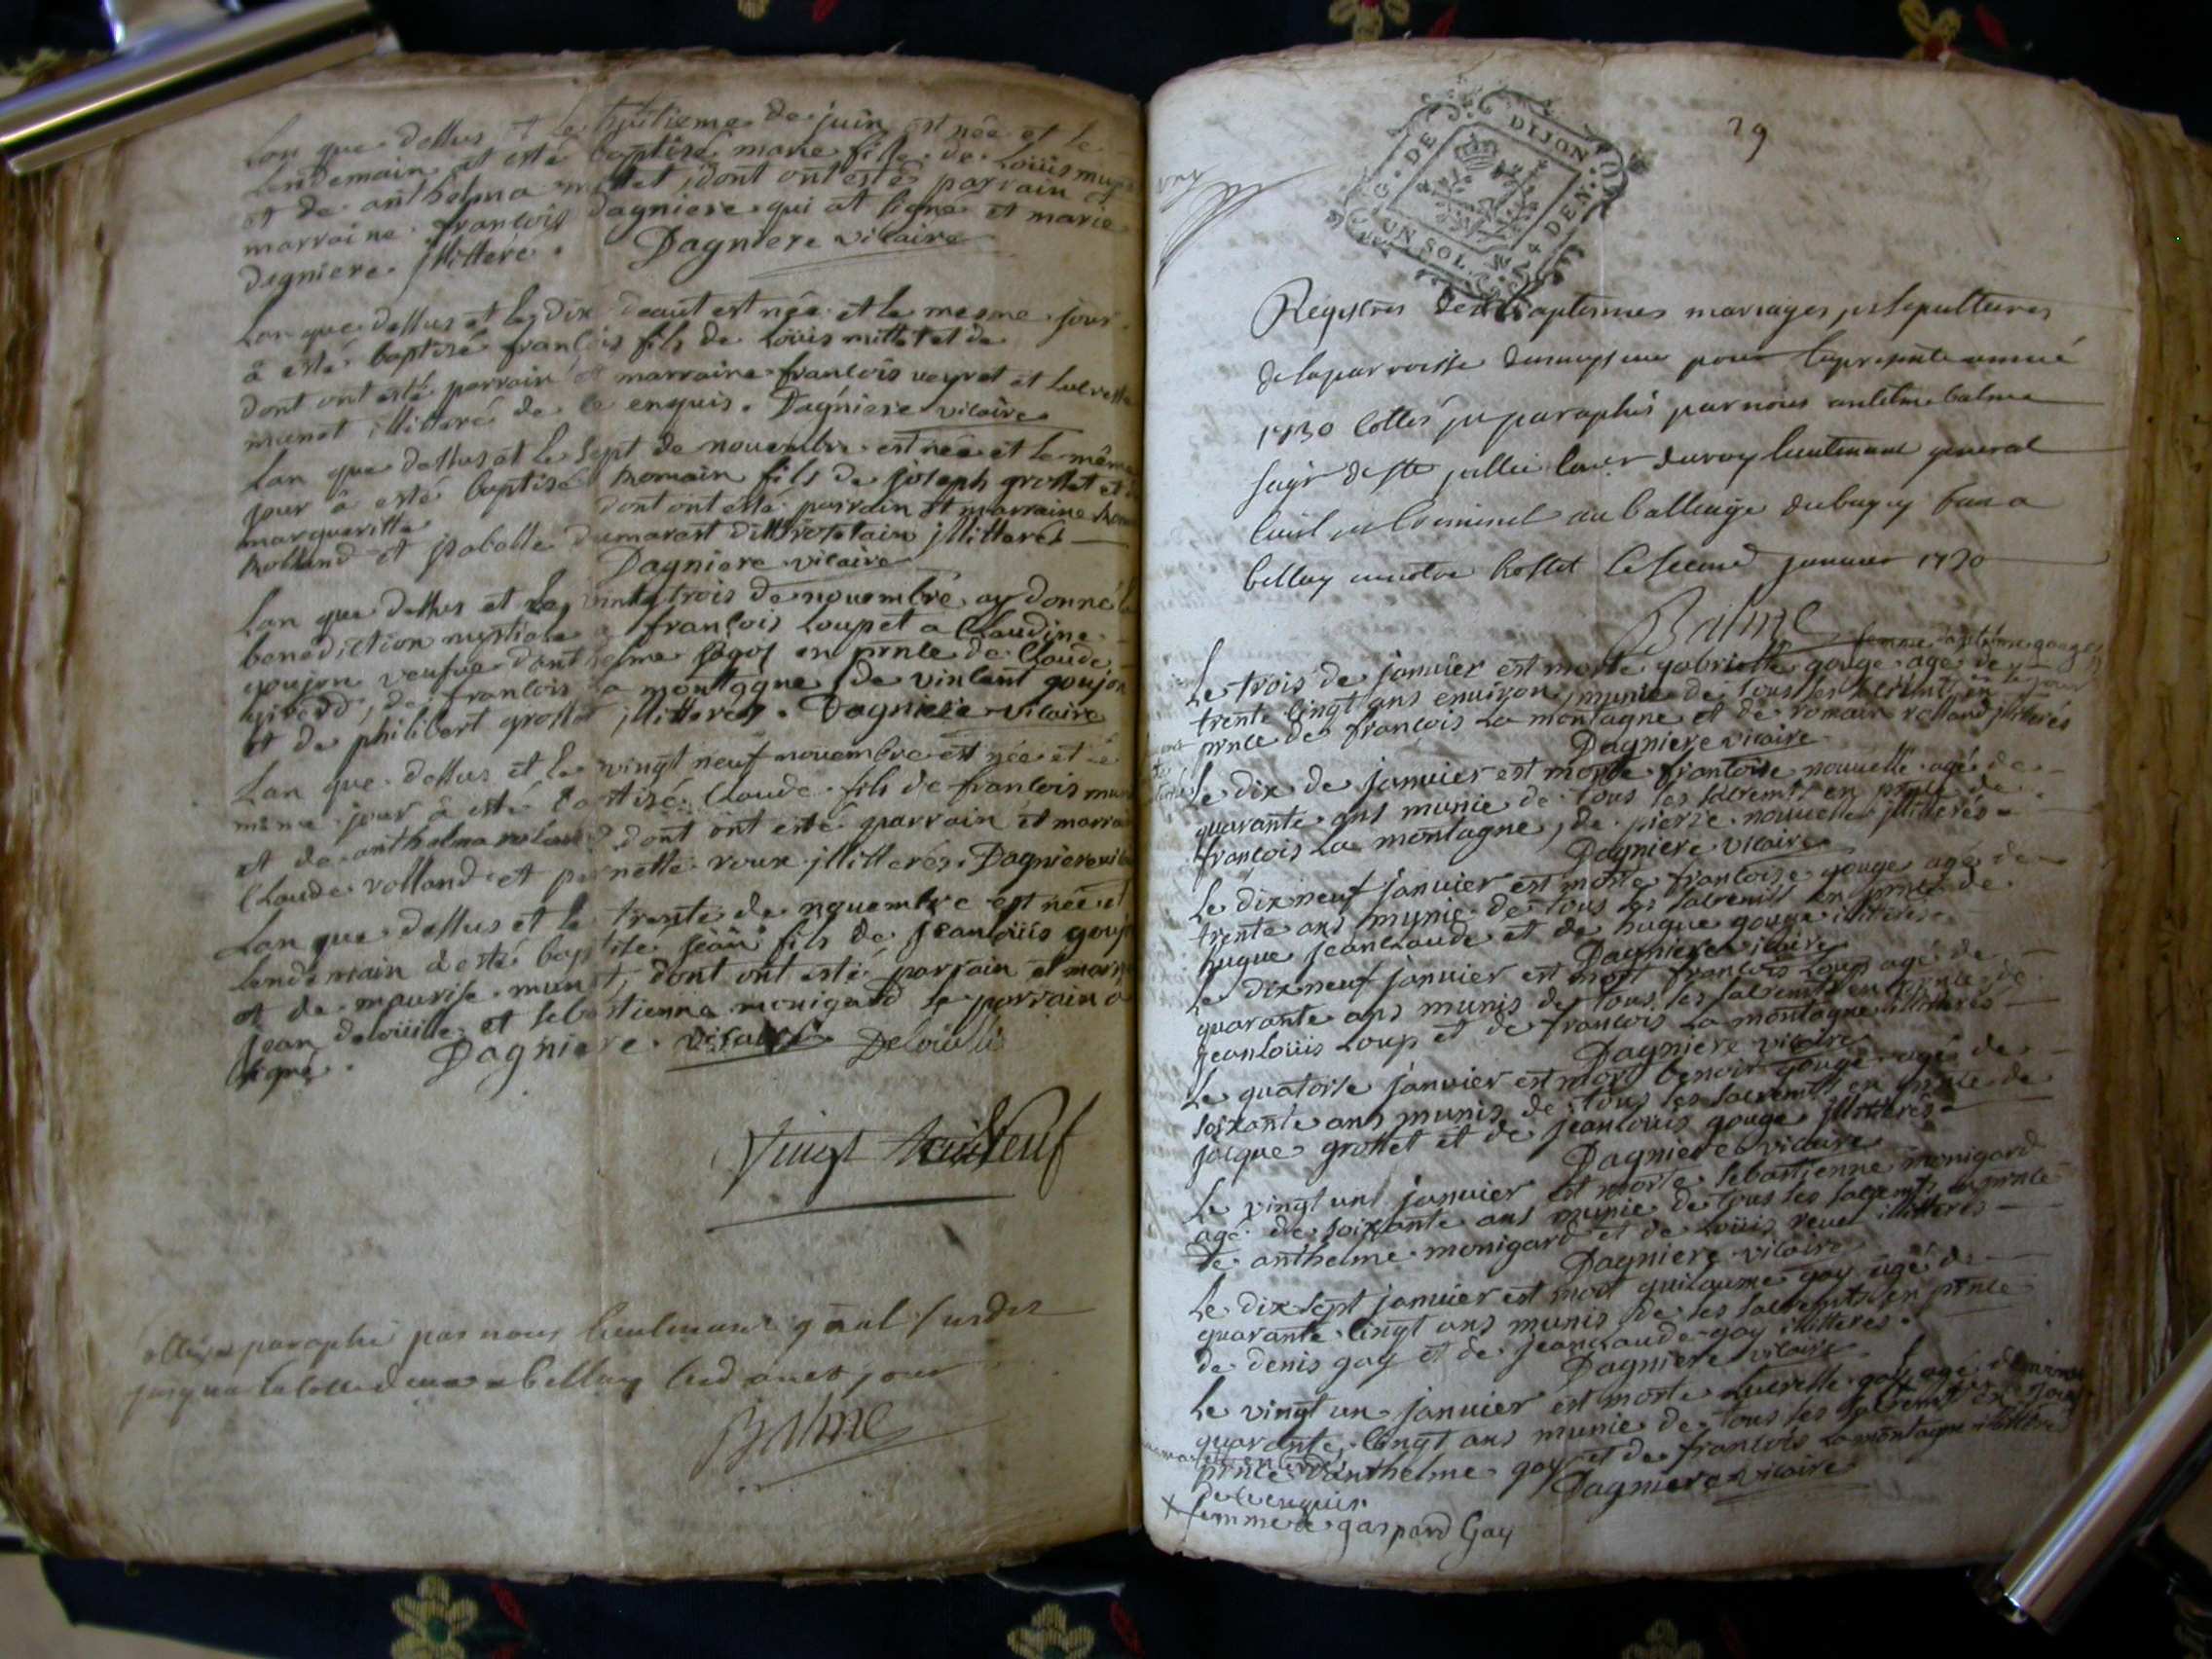 Lan que dessus et le huitieme de juin est née et le
lendemain at esté baptisé marie fille de Loüis mun
et de anthelma mittet, dont ont estés parrain et
marraine françois dagniere qui at signé et marie
degniere jllitteré. Dagniere vicaire
Lan que dessus et le dix daout est née et le mesme jour
â esté baptisé françois fils de Loüis mittet et de
dont ont esté parrain et marraine françois veyret et lucresse
munet illitteré de ce enquis. Dagniere vicaire
Lan que dessus et le sept de nouembre est née et le même
jour â esté baptisé Romain fils de joseph grosset et
margueritte dont ont esté parrain et marraine Rom
Rolland et jsabelle dumarast jllitterés
Dagniere vicaire
Lan que dessus et le vint trois de nouembre ay donné la
benediction nuptiale a françois Loupet a Claudine
goujon veufue en prnce de Claude
girerd, de françois La montagne, de vincent goujon
et de philibert grosset jllitteréz. Dagniere vicaire
Lan que dessus et le vingt neuf nouembre est née et le
mème jour â esté baptizé Claude fils de françois mun
et de anthelma rolland dont ont esté parrain et marra
Claude rolland et pernette roux jllitterés. Dagniere vic
Lan que dessus et le trente de nouembre est née et
lendemain â esté baptisé jean fils de jeanloüis gouj
et de maurise munet, dont ont esté parrain et marr
jean deloüille et sebastienne monigard le parrain a
signé. Dagniere vicaire Deloüille
Vingt neuf
paraphé par nous lieutenant
a Belley
Balme
29
G. DE DIJON
UN SOL. 4 DEN.
Registres des baptesmes mariages et sepultures
de la parroisse pour la presente anneé
1730 cottés et paraphés par nous antelme balme
sgr de ste jullie coner du roy lieutenant general
ciuil et criminel au balliage du bugey seant a
belley en notre hostel le second januier 1730
Balme
femme danthelme gouge
Le trois de januier est morte gabrielle gouge agé de
trente cinqt ans enuiron, munie de tous les sacremts en
prnce de françois La montagne et de romain rolland jllitterés
Dagniere vicaire
Le dix de januier est morte françoise nouuelle agé de
quarante ans munie de tous les sacremts en prnce de
françois La montagne, de pierre nouuelle jllitterés
Dagniere vicaire
Le dixneuf januier est morte françoise gouge agé de
trente ans munie de tous les sacremts en prnce de
hugue jeanclaude et de hugue gouge illitterés
Dagniere vicaire
Le dixneuf januier est mort françois Loup agé de
quarante ans munis de tous les sacremts en prnce de
jeanloüis Loup et de françois La montagne illitterés
Dagniere vicaire
Le quatorse januier est mort benoit gouge agé de
soixante ans munis de tous les sacremts en prnce de
jacque grosset et de jeanlouis gouge jllitterés
Dagniere vicaire
Le vingt uns januier est morte sebastienne monigard
agé de soixante ans munie de tous les sacremts en prnce
de anthelme monigard et de Loüis reuel illitterés
Dagniere vicaire
Le dixsept januier est mort guilaume gay agé de
quarante cinqt ans munis de les sacremts en prnce
de denis gay et de jeanclaude gay illitterés.
Dagniere vicaire
Le vingt un januier est morte Lucresse gay agé denuiron
quarante cinqt ans munie de tous les sacremts en
prnce danthelme gay et de françois La montagne illitteré
de ce enquis Dagniere vicaire
femme de gaspard Gay